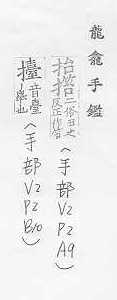 龍龕手鑑
抬 二俗丑之反正作笞（手部V2P2A9）
擡音臺｜舉也（手部V2P2B10）